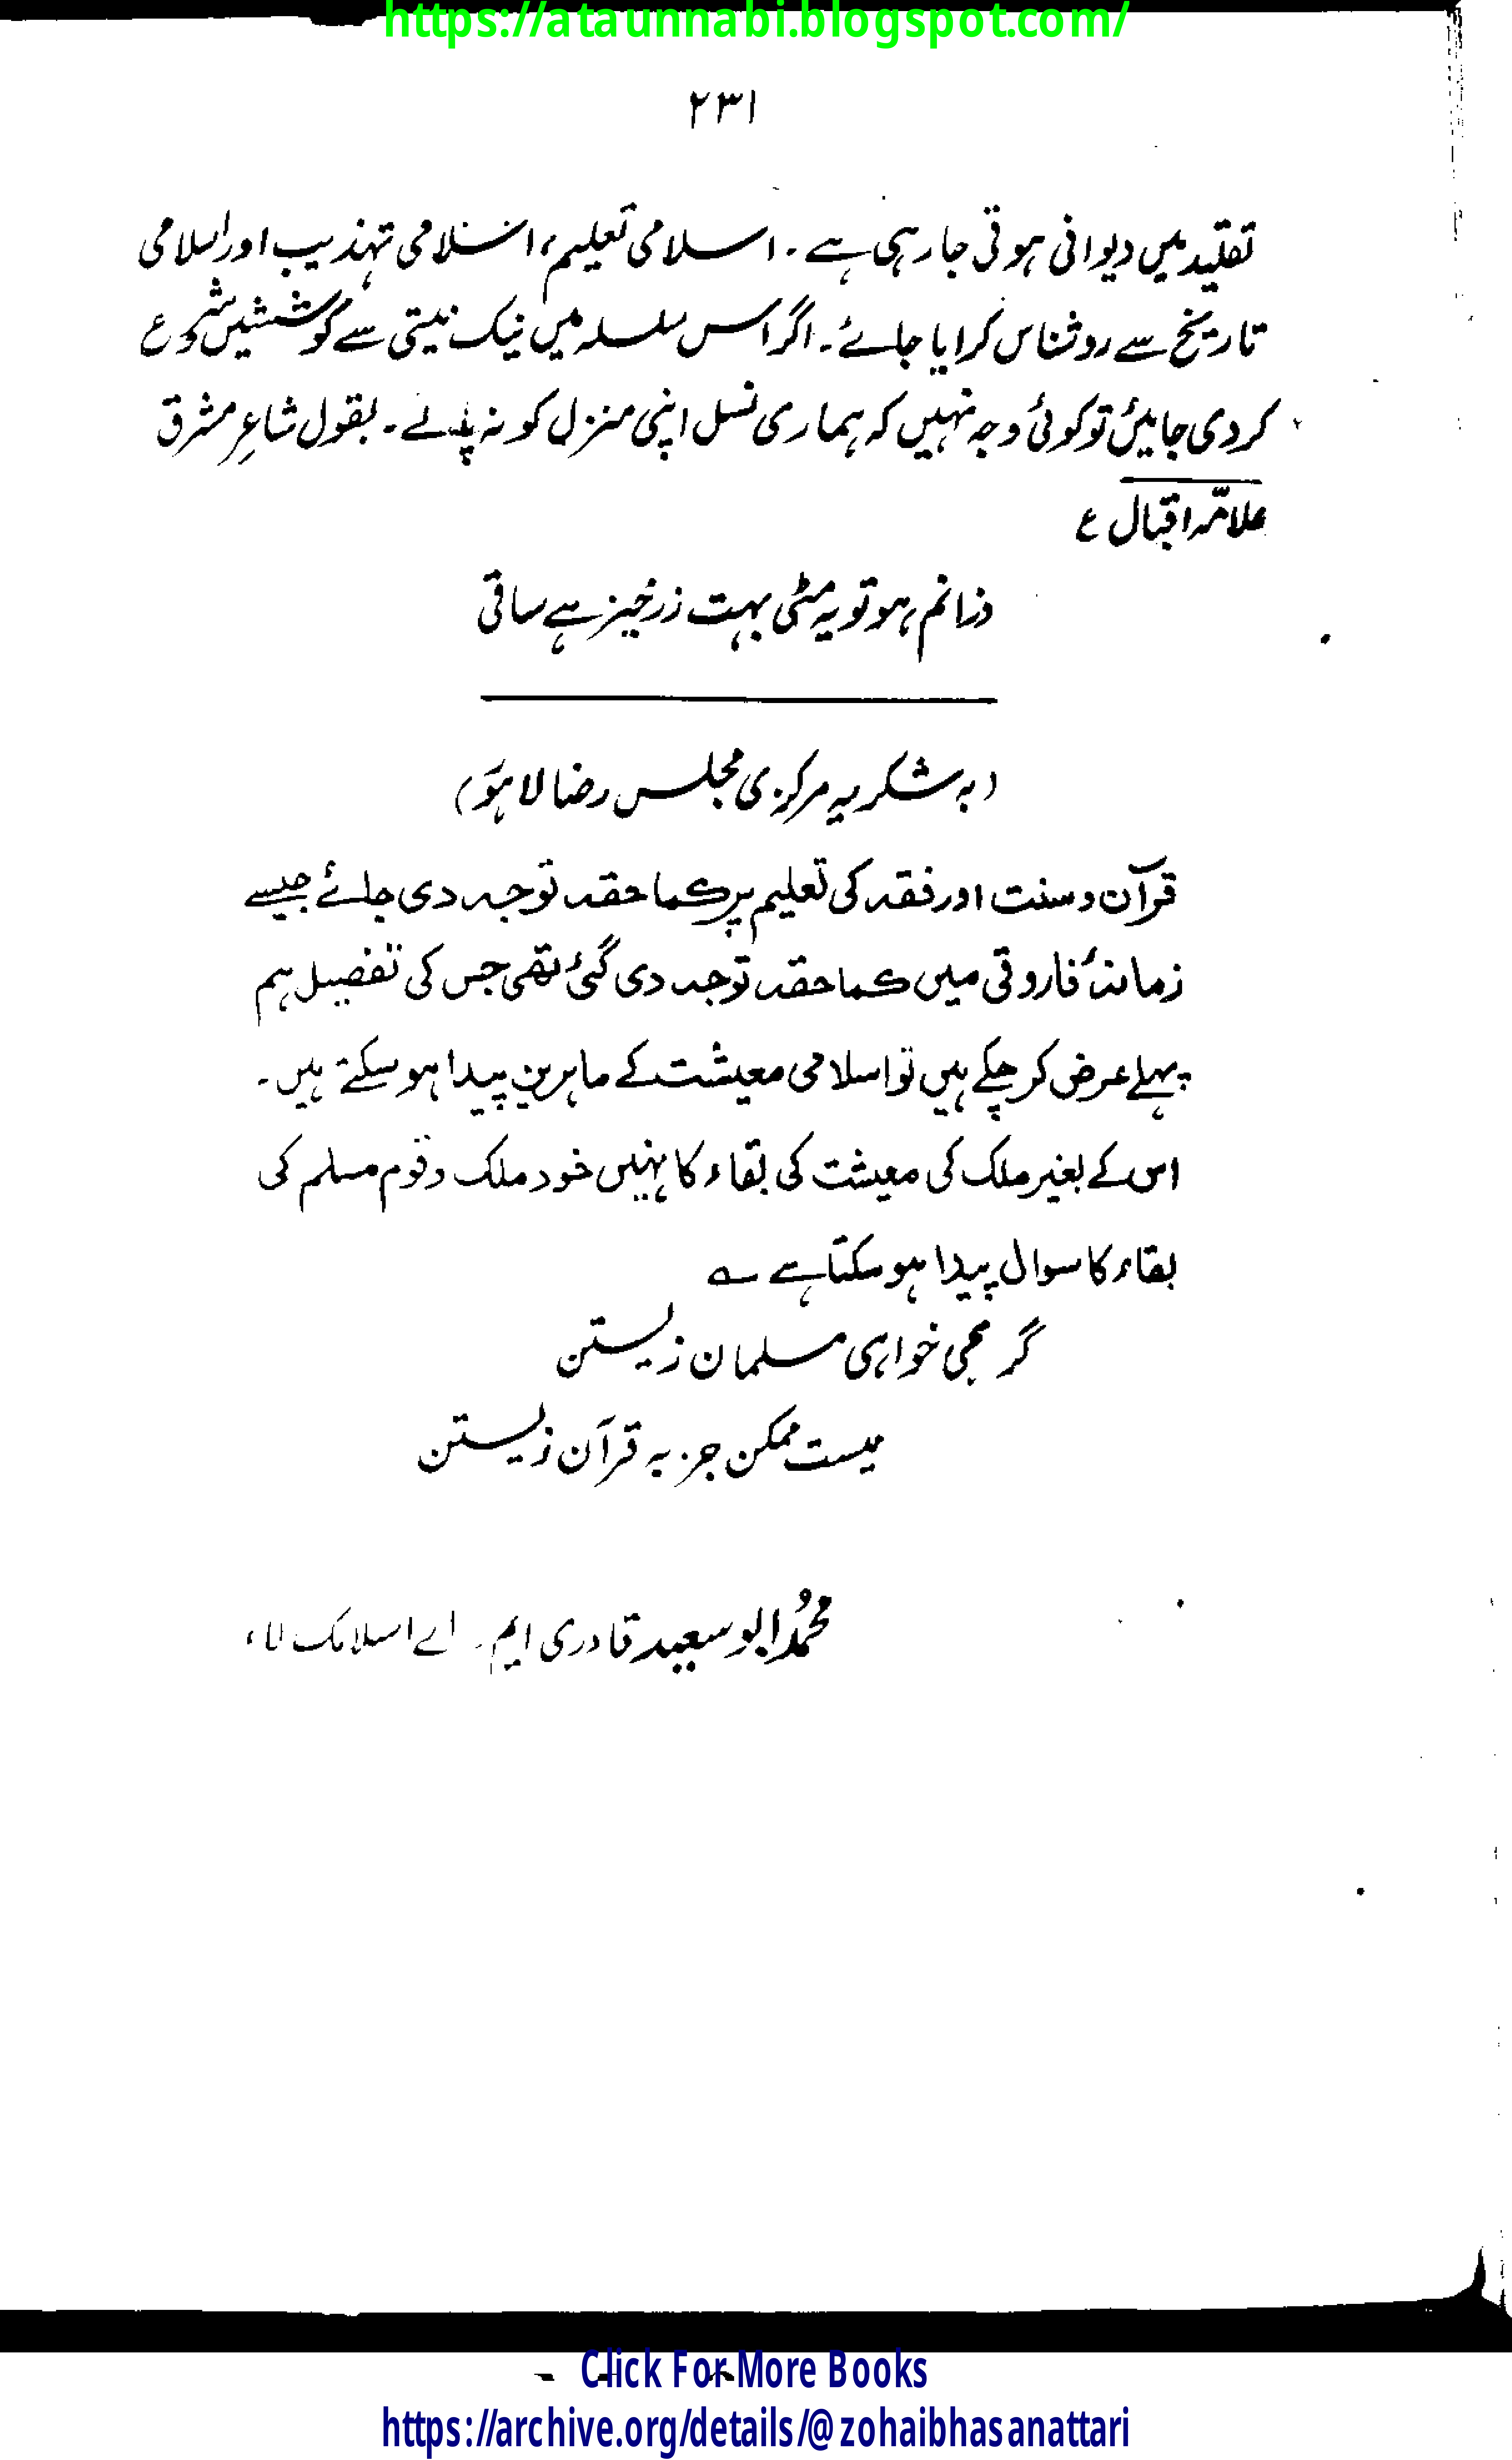 https://ataunnabi.blogspot.com/
۲۳۱
تقلید میں دیوانی ہوتی جا رہی ہے ۔ اسلامی تعلیم، اسلامی تہذیب اور اسلامی
تاریخ سے روشناس کرایا جائے۔ اگر اس سلسلہ میں نیک نیتی سے کوششیں شروع
کر دی جائیں تو کوئی وجہ نہیں کہ ہماری نسل اپنی منزل کو نہ پائے ۔ بقول شاعرِ مشرق
علامّہ اقبال ع
ذرا نم ہو تو یہ مٹی بہت زرخیز ہے ساقی
(بہ شکریہ مرکزی مجلس رضا لاہور)
قرآن و سنت اور فقہ کی تعلیم پر کما حقہ توجہ دی جائے جیسے
زمانۂ فاروقی میں کما حقہ توجہ دی گئی تھی جس کی تفصیل ہم
پہلے عرض کر چکے ہیں تو اسلامی معیشت کے ماہرین پیدا ہو سکتے ہیں ۔
اس کے بغیر ملک کی معیشت کی بقاء کا نہیں خود ملک و قوم مسلم کی
بقاء کا سوال پیدا ہو سکتا ہے ؎
گر می خواہی مسلمان زیستن
نیست ممکن جز بہ قرآن زیستن
محمدُ ابو سعید قادری ایم ۔ اے اسلامک لاء
Click For More Books
https://archive.org/details/@zohaibhasanattari